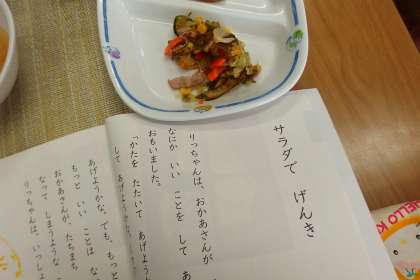 サラダで げんき
りっちゃんは、おかあさんが
なにか いい ことを して あ
おもいました。
「かたを たたいて あげよう
して あげよう
あげようかな。でも、もっと
もっと いい ことは な
おかあさんが、たちまち
なって しまうような
りっちゃんは、いっしょ
HELLO K